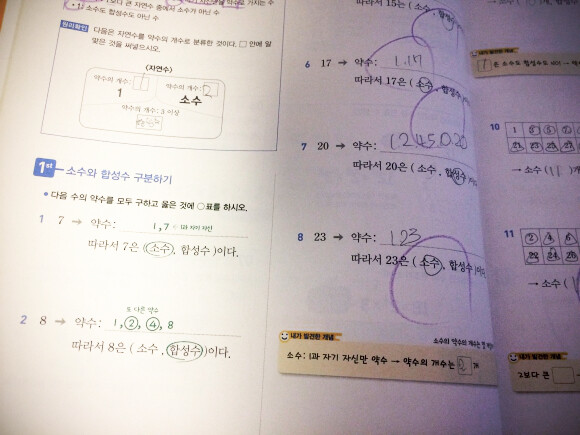 1보다 큰 자연수 중에서 소수가 아닌 수
• 1: 소수도 합성수도 아닌 수
원리확인 다음은 자연수를 약수의 개수로 분류한 것이다. □ 안에 알
맞은 것을 써넣으시오.
(자연수)
약수의 개수: 1
약수의 개수: 2
1
소수
약수의 개수: 3 이상
합성수
1st 소수와 합성수 구분하기
• 다음 수의 약수를 모두 구하고 옳은 것에 ○표를 하시오.
1 7 → 약수: 1, 7 ← 1과 자기 자신
따라서 7은 (소수, 합성수)이다.
또 다른 약수
2 8 → 약수: 1, 2, 4, 8
따라서 8은 (소수, 합성수)이다.
따라서 15는 (소수,
6 17 → 약수: 1.17
따라서 17은 (소수, 합성수)
7 20 → 약수: 1.2.4.5.0.20
따라서 20은 (소수, 합성수)
8 23 → 약수: 1 23
따라서 23은 (소수, 합성수)
내가 발견한 개념
소수의 약수의 개수는
소수: 1과 자기 자신만 약수 → 약수의 개수는 2 개
내가 발견한 개념
1 은 소수도 합성수도
10
1
→ 소수 (11)
11
2 4 6
22 24 26
→ 소수 (
내가 발견한 개념
2보다 큰